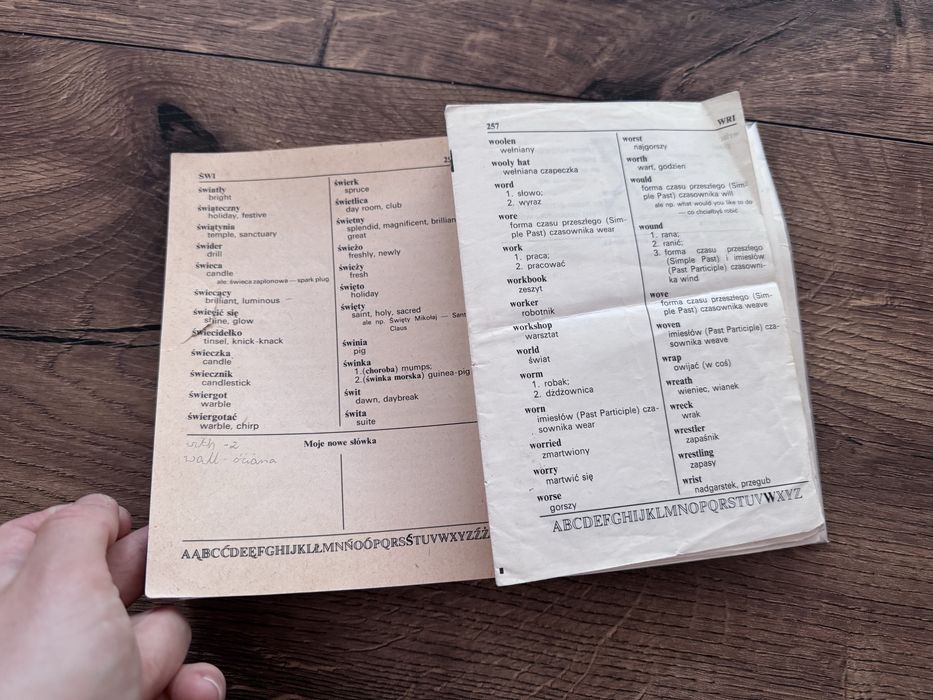 ŚWI
światły
bright
świąteczny
holiday, festive
świątynia
temple, sanctuary
świder
drill
świeca
candle
ale: świeca zapłonowa — spark plug
świecący
brilliant, luminous
świecić się
shine, glow
świecidełko
tinsel, knick-knack
świeczka
candle
świecznik
candlestick
świergot
warble
świergotać
warble, chirp
świerk
spruce
świetlica
day room, club
świetny
splendid, magnificent, brillian
great
świeżo
freshly, newly
świeży
fresh
święto
holiday
święty
saint, holy, sacred
ale np. Święty Mikołaj — Sant
Claus
świnia
pig
świnka
1.(choroba) mumps;
2.(świnka morska) guinea-pig
świt
dawn, daybreak
świta
suite
Moje nowe słówka
with -z
wall - ściana
AĄBCĆDEĘFGHIJKLŁMNŃOÓPQRSŚTUVWXYZŹŻ
257
WRI
woolen
wełniany
wooly hat
wełniana czapeczka
word
1. słowo;
2. wyraz
wore
forma czasu przeszłego (Sim-
ple Past) czasownika wear
work
1. praca;
2. pracować
workbook
zeszyt
worker
robotnik
workshop
warsztat
world
świat
worm
1. robak;
2. dżdżownica
worn
imiesłów (Past Participle) cza-
sownika wear
worried
zmartwiony
worry
martwić się
worse
gorszy
worst
najgorszy
worth
wart, godzien
would
forma czasu przeszłego (Sim-
ple Past) czasownika will
ale np. what would you like to do
— co chciałbyś robić
wound
1. rana;
2. ranić;
3. forma czasu przeszłego
(Simple Past) i imiesłów
(Past Participle) czasowni-
ka wind
wove
forma czasu przeszłego (Sim-
ple Past) czasownika weave
woven
imiesłów (Past Participle) cza-
sownika weave
wrap
owijać (w coś)
wreath
wieniec, wianek
wreck
wrak
wrestler
zapaśnik
wrestling
zapasy
wrist
nadgarstek, przegub
ABCDEFGHIJKLMNOPQRSTUVWXYZ